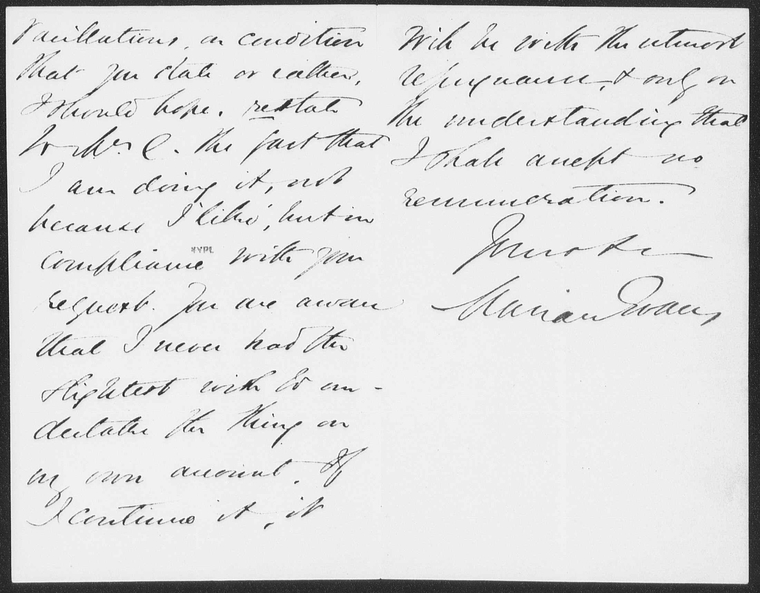 vacillations, on condition
that you state or rather,
I should hope, restate
to Mr. C. the fact that
I am doing it, not
because I 'like', but in
compliance with your
NYPL
request. You are aware
that I never had the
slightest wish to un-
dertake the thing on
my own account. If
I continue it, it
will be with the utmost
repugnance, & only on
the understanding that
I shall accept no
remuneration.
Yours &c
Marian Evans